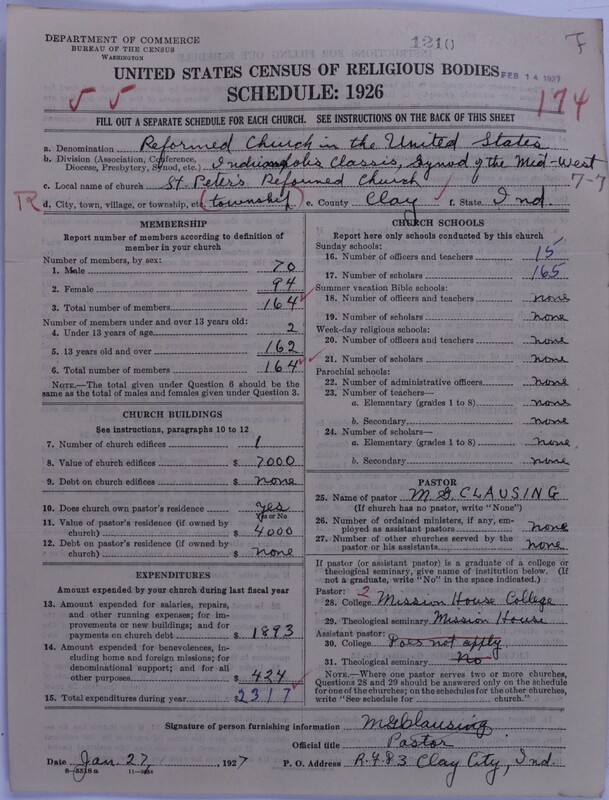 DEPARTMENT OF COMMERCE
BUREAU OF THE CENSUS
WASHINGTON
1210
F
UNITED STATES CENSUS OF RELIGIOUS BODIES
FEB 14 1927
SCHEDULE: 1926
174
5 5
FILL OUT A SEPARATE SCHEDULE FOR EACH CHURCH. SEE INSTRUCTIONS ON THE BACK OF THIS SHEET
a. Denomination Reformed Church in the United States
b. Division (Association, Conference, Diocese, Presbytery, Synod, etc.) Indianapolis Classis, Synod of the Mid-West
7-7
c. Local name of church St. Peters Reformed Church
R
d. City, town, village, or township, etc. (township) e. County Clay f. State Ind.
MEMBERSHIP
Report number of members according to definition of member in your church
Number of members, by sex:
1. Male 70
2. Female 94
3. Total number of members 164
Number of members under and over 13 years old:
4. Under 13 years of age 2
5. 13 years old and over 162
6. Total number of members 164
NOTE.—The total given under Question 6 should be the same as the total of males and females given under Question 3.
CHURCH BUILDINGS
See instructions, paragraphs 10 to 12
7. Number of church edifices 1
8. Value of church edifices $ 7000
9. Debt on church edifices $ none
10. Does church own pastor's residence yes
Yes or No
11. Value of pastor's residence (if owned by church) $ 4000
12. Debt on pastor's residence (if owned by church) $ none
EXPENDITURES
Amount expended by your church during last fiscal year
13. Amount expended for salaries, repairs, and other running expenses; for improvements or new buildings; and for payments on church debt $ 1893
14. Amount expended for benevolences, including home and foreign missions; for denominational support; and for all other purposes $ 424
15. Total expenditures during year $ 2317
CHURCH SCHOOLS
Report here only schools conducted by this church
Sunday schools:
16. Number of officers and teachers 15
17. Number of scholars 165
Summer vacation Bible schools:
18. Number of officers and teachers none
19. Number of scholars none
Week-day religious schools:
20. Number of officers and teachers none
21. Number of scholars none
Parochial schools:
22. Number of administrative officers none
23. Number of teachers—
a. Elementary (grades 1 to 8) none
b. Secondary none
24. Number of scholars—
a. Elementary (grades 1 to 8) none
b. Secondary none
PASTOR
25. Name of pastor M.G. CLAUSING
(If church has no pastor, write "None")
26. Number of ordained ministers, if any, employed as assistant pastors none
27. Number of other churches served by the pastor or his assistants none
If pastor (or assistant pastor) is a graduate of a college or theological seminary, give name of institution below. (If not a graduate, write "No" in the space indicated.)
Pastor: 2
28. College Mission House College
29. Theological seminary Mission House
Assistant pastor:
30. College Does not apply
31. Theological seminary No
NOTE.—Where one pastor serves two or more churches, Questions 28 and 29 should be answered only on the schedule for one of the churches; on the schedules for the other churches, write "See schedule for church."
Signature of person furnishing information M G Clausing
Official title Pastor
Date Jan. 27, 1927 P. O. Address R. F. D 3 Clay City, Ind.